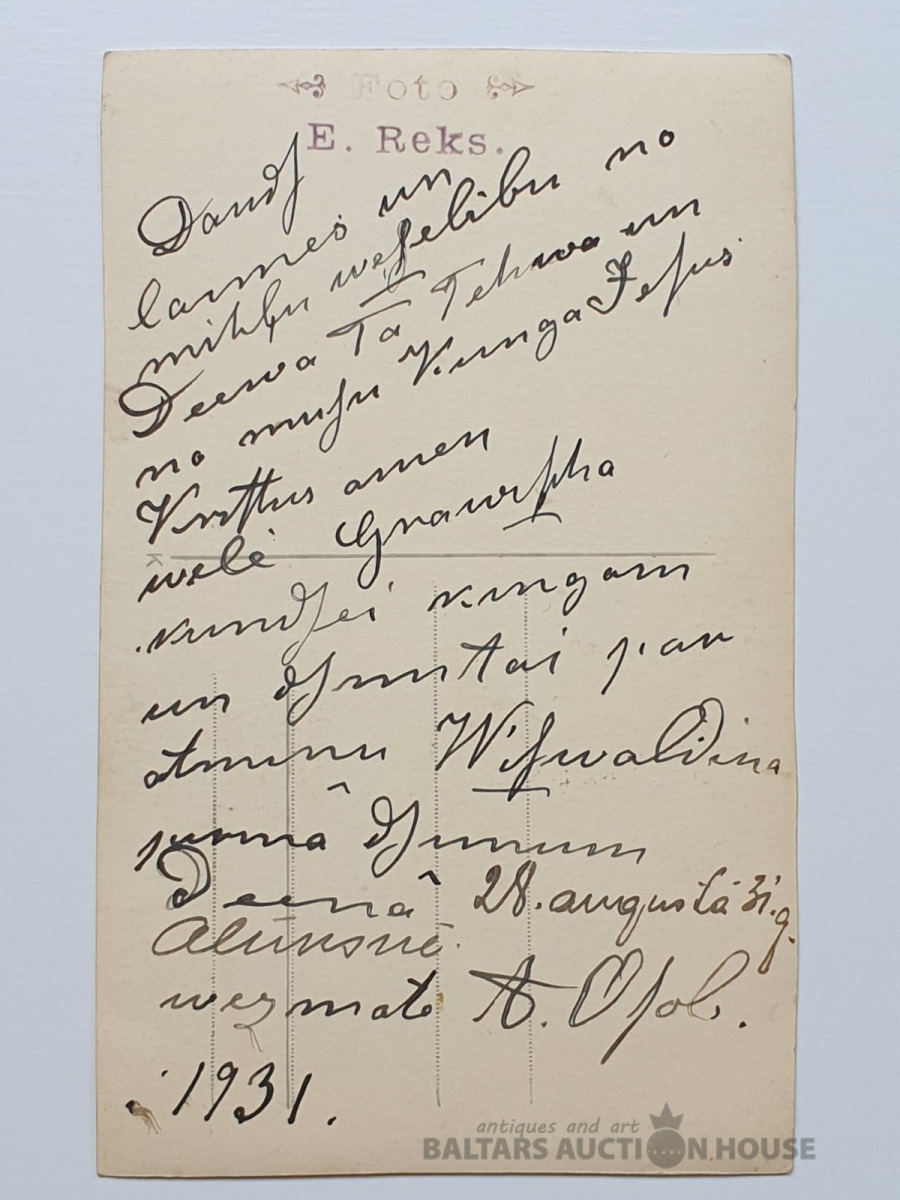 Foto
E. Reks.
Daudſ
laimes un
mihļu weſelibu no
Deewa Ta Tehwa un
no muſu Kunga Jeſus
Kriſtus amen
welē Grawiſcha
kundſei kungam
un dſimtai par
atminu Wiſwaldiņa
pirmâ dſimum
Deenâ 28. augustā 31.g.
Alūksnē.
wezmate A. Oſol.
1931.
K
antiques and art
BALTARS AUCTION HOUSE